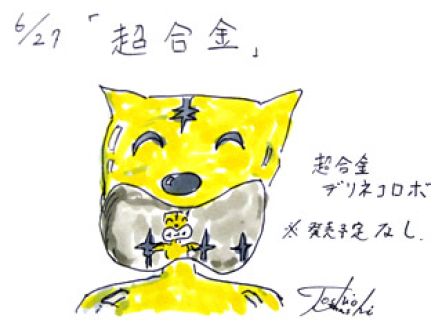 6/27 「超合金」
超合金
デリネコロボ
※発売予定なし.
Toshio